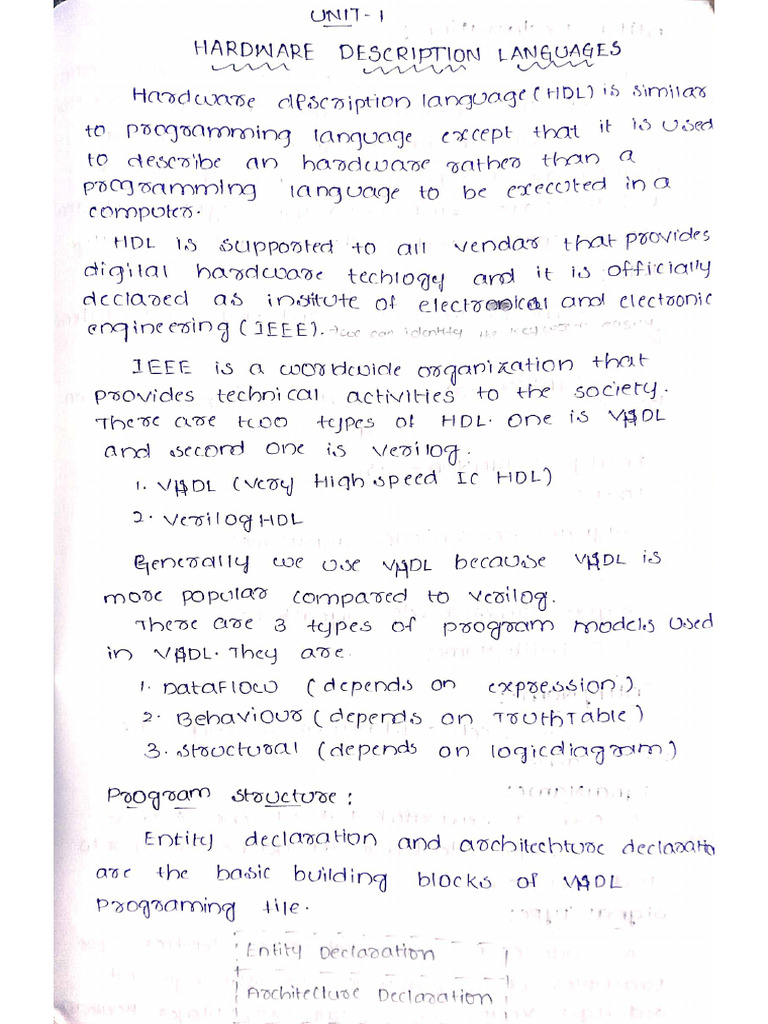 UNIT-1
HARDWARE DESCRIPTION LANGUAGES
Hardware description language (HDL) is similar
to programming language except that it is used
to describe an hardware rather than a
programming language to be executed in a
computer.
HDL is supported to all vendar that provides
digital hardware techlogy and it is officially
declared as institute of electronical and electronic
engineering (IEEE). →we can identify
IEEE is a wordwide organization that
provides technical activities to the society.
There are two types of HDL. One is VHDL
and second one is verilog.
1. VHDL (Very High speed IC HDL)
2. Verilog HDL
Generally we use VHDL because VHDL is
more popular compared to verilog.
There are 3 types of program models used
in VHDL. They are.
1. Dataflow (depends on expression)
2. Behaviour (depends on TruthTable)
3. Structural (depends on logicdiagram)
Program structure:
Entity declaration and architechture declaratin
are the basic building blocks of VHDL
Programing file.
Entity Declaration
Architecture Declaration